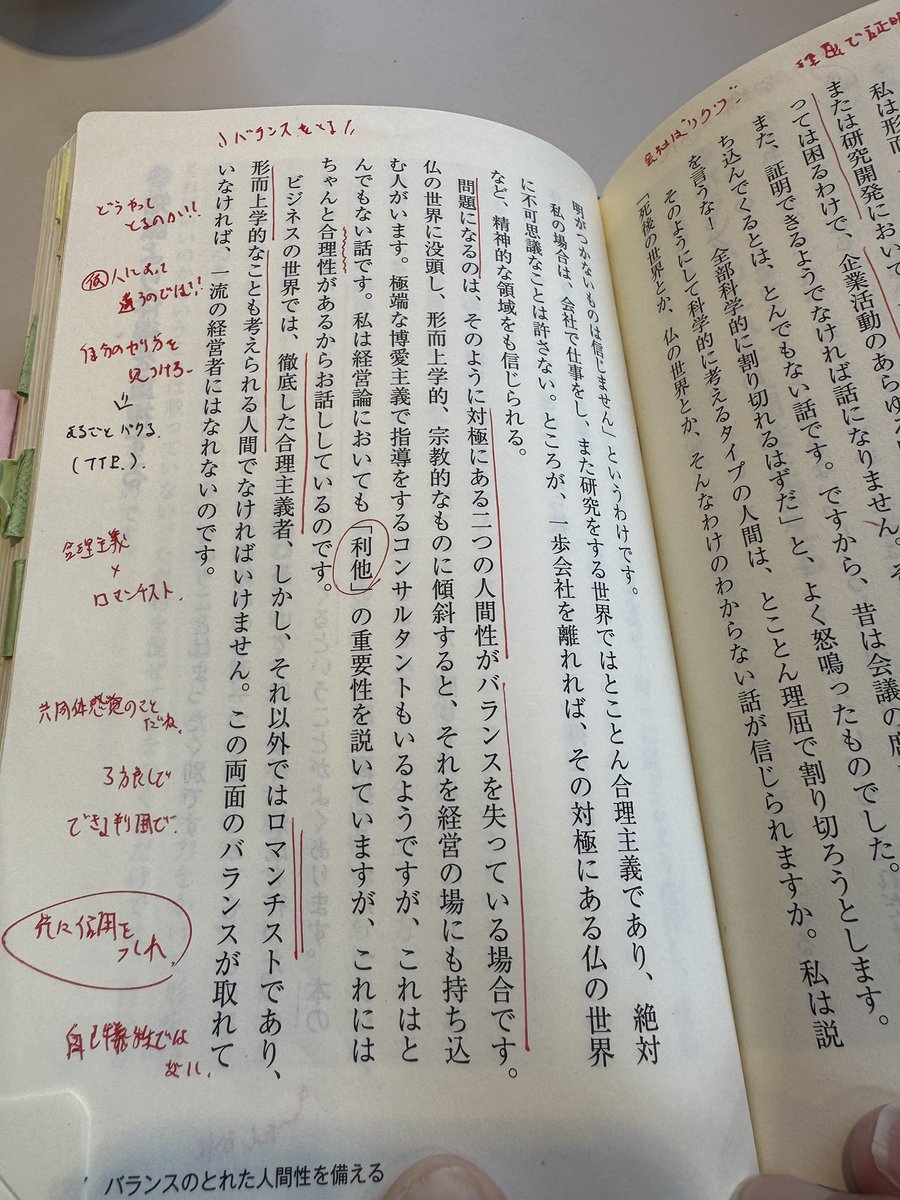 私は形而
または研究開発において、
っては困るわけで、企業活動のあらゆ
また、証明できるようでなければ話になりません。そ
ち込んでくるとは、とんでもない話です。ですから、昔は会議の席
を言うな！　全部科学的に割り切れるはずだ」と、よく怒鳴ったものでした。
そのようにして科学的に考えるタイプの人間は、とことん理屈で割り切ろうとします。
「死後の世界とか、仏の世界とか、そんなわけのわからない話が信じられますか。私は説
明がつかないものは信じません」というわけです。
私の場合は、会社で仕事をし、また研究をする世界ではとことん合理主義であり、絶対
に不可思議なことは許さない。ところが、一歩会社を離れれば、その対極にある仏の世界
など、精神的な領域をも信じられる。
問題になるのは、そのように対極にある二つの人間性がバランスを失っている場合です。
仏の世界に没頭し、形而上学的、宗教的なものに傾斜すると、それを経営の場にも持ち込
む人がいます。極端な博愛主義で指導をするコンサルタントもいるようですが、これはと
んでもない話です。私は経営論においても「利他」の重要性を説いていますが、これには
ちゃんと合理性があるからお話ししているのです。
ビジネスの世界では、徹底した合理主義者、しかし、それ以外ではロマンチストであり、
形而上学的なことも考えられる人間でなければいけません。この両面のバランスが取れて
いなければ、一流の経営者にはなれないのです。
会社は"リクツ"
バランスをとる
どうやって
とるのか!!
仮 人によって
違うのでは!!
自分のやり方を
見つける。
まるごとパクる
(TTP.).
合理主義
×
ロマンチスト.
共同体感覚のこと
だね.
3方良しで
できる判囲で.
先に信用を
つくれ.
自己犠牲では
ない.
バランスのとれた人間性を備える